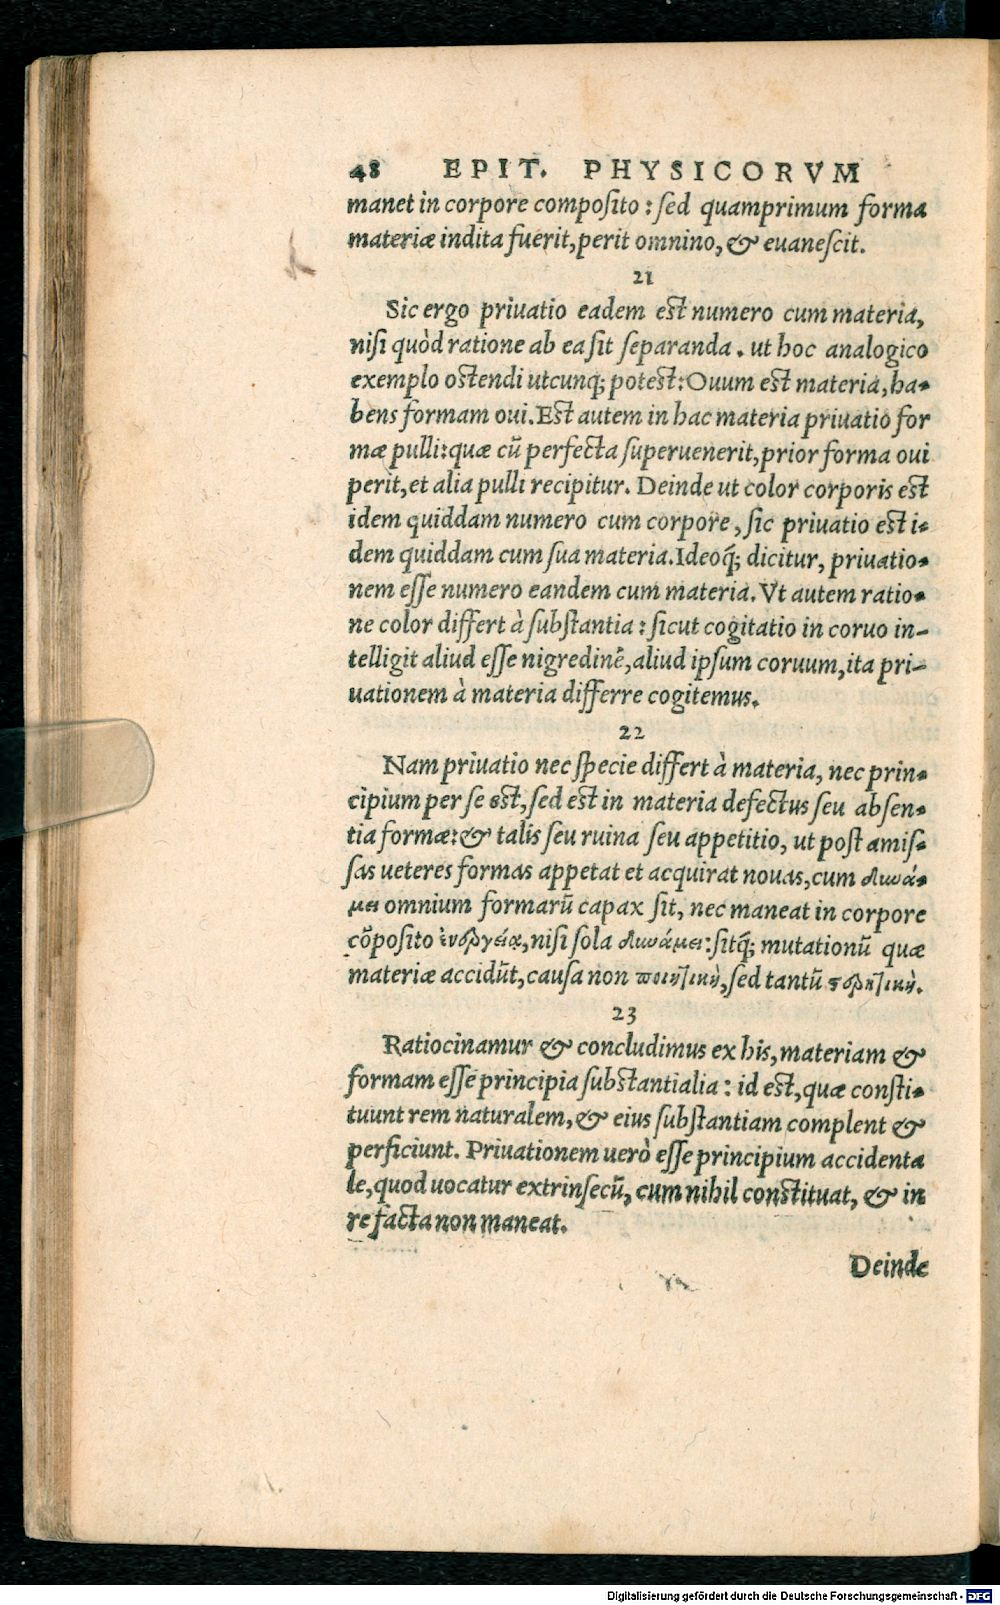 48 EPIT. PHYSICORVM
manet in corpore composito : sed quamprimum forma
materiæ indita fuerit, perit omnino, & euanescit.
21
Sic ergo priuatio eadem est numero cum materia,
nisi quòd ratione ab ea sit separanda . ut hoc analogico
exemplo ostendi utcunq; potest: Ouum est materia, ha-
bens formam oui. Est autem in hac materia priuatio for
mæ pulli: quæ cū perfecta superuenerit, prior forma oui
perit, et alia pulli recipitur. Deinde ut color corporis est
idem quiddam numero cum corpore , sic priuatio est i-
dem quiddam cum sua materia. Ideoq́; dicitur, priuatio-
nem esse numero eandem cum materia. Vt autem ratio-
ne color differt à substantia : sicut cogitatio in coruo in-
telligit aliud esse nigredinē, aliud ipsum coruum, ita pri-
uationem à materia differre cogitemus.
22
Nam priuatio nec specie differt à materia, nec prin-
cipium per se est, sed est in materia defectus seu absen-
tia formæ: & talis seu ruina seu appetitio, ut post amis-
sas ueteres formas appetat et acquirat nouas, cum δυνά-
μει omnium formarū capax sit, nec maneat in corpore
cōposito ἐνεργείᾳ, nisi sola δυνάμει: sitq́; mutationū quæ
materiæ accidūt, causa non ποιητικὴ, sed tantū στερητικὴ.
23
Ratiocinamur & concludimus ex his, materiam &
formam esse principia substantialia : id est, quæ consti-
tuunt rem naturalem, & eius substantiam complent &
perficiunt. Priuationem uerò esse principium accidenta
le, quod uocatur extrinsecū, cum nihil constituat, & in
re facta non maneat.
Deinde
Digitalisierung gefördert durch die Deutsche Forschungsgemeinschaft - DFG